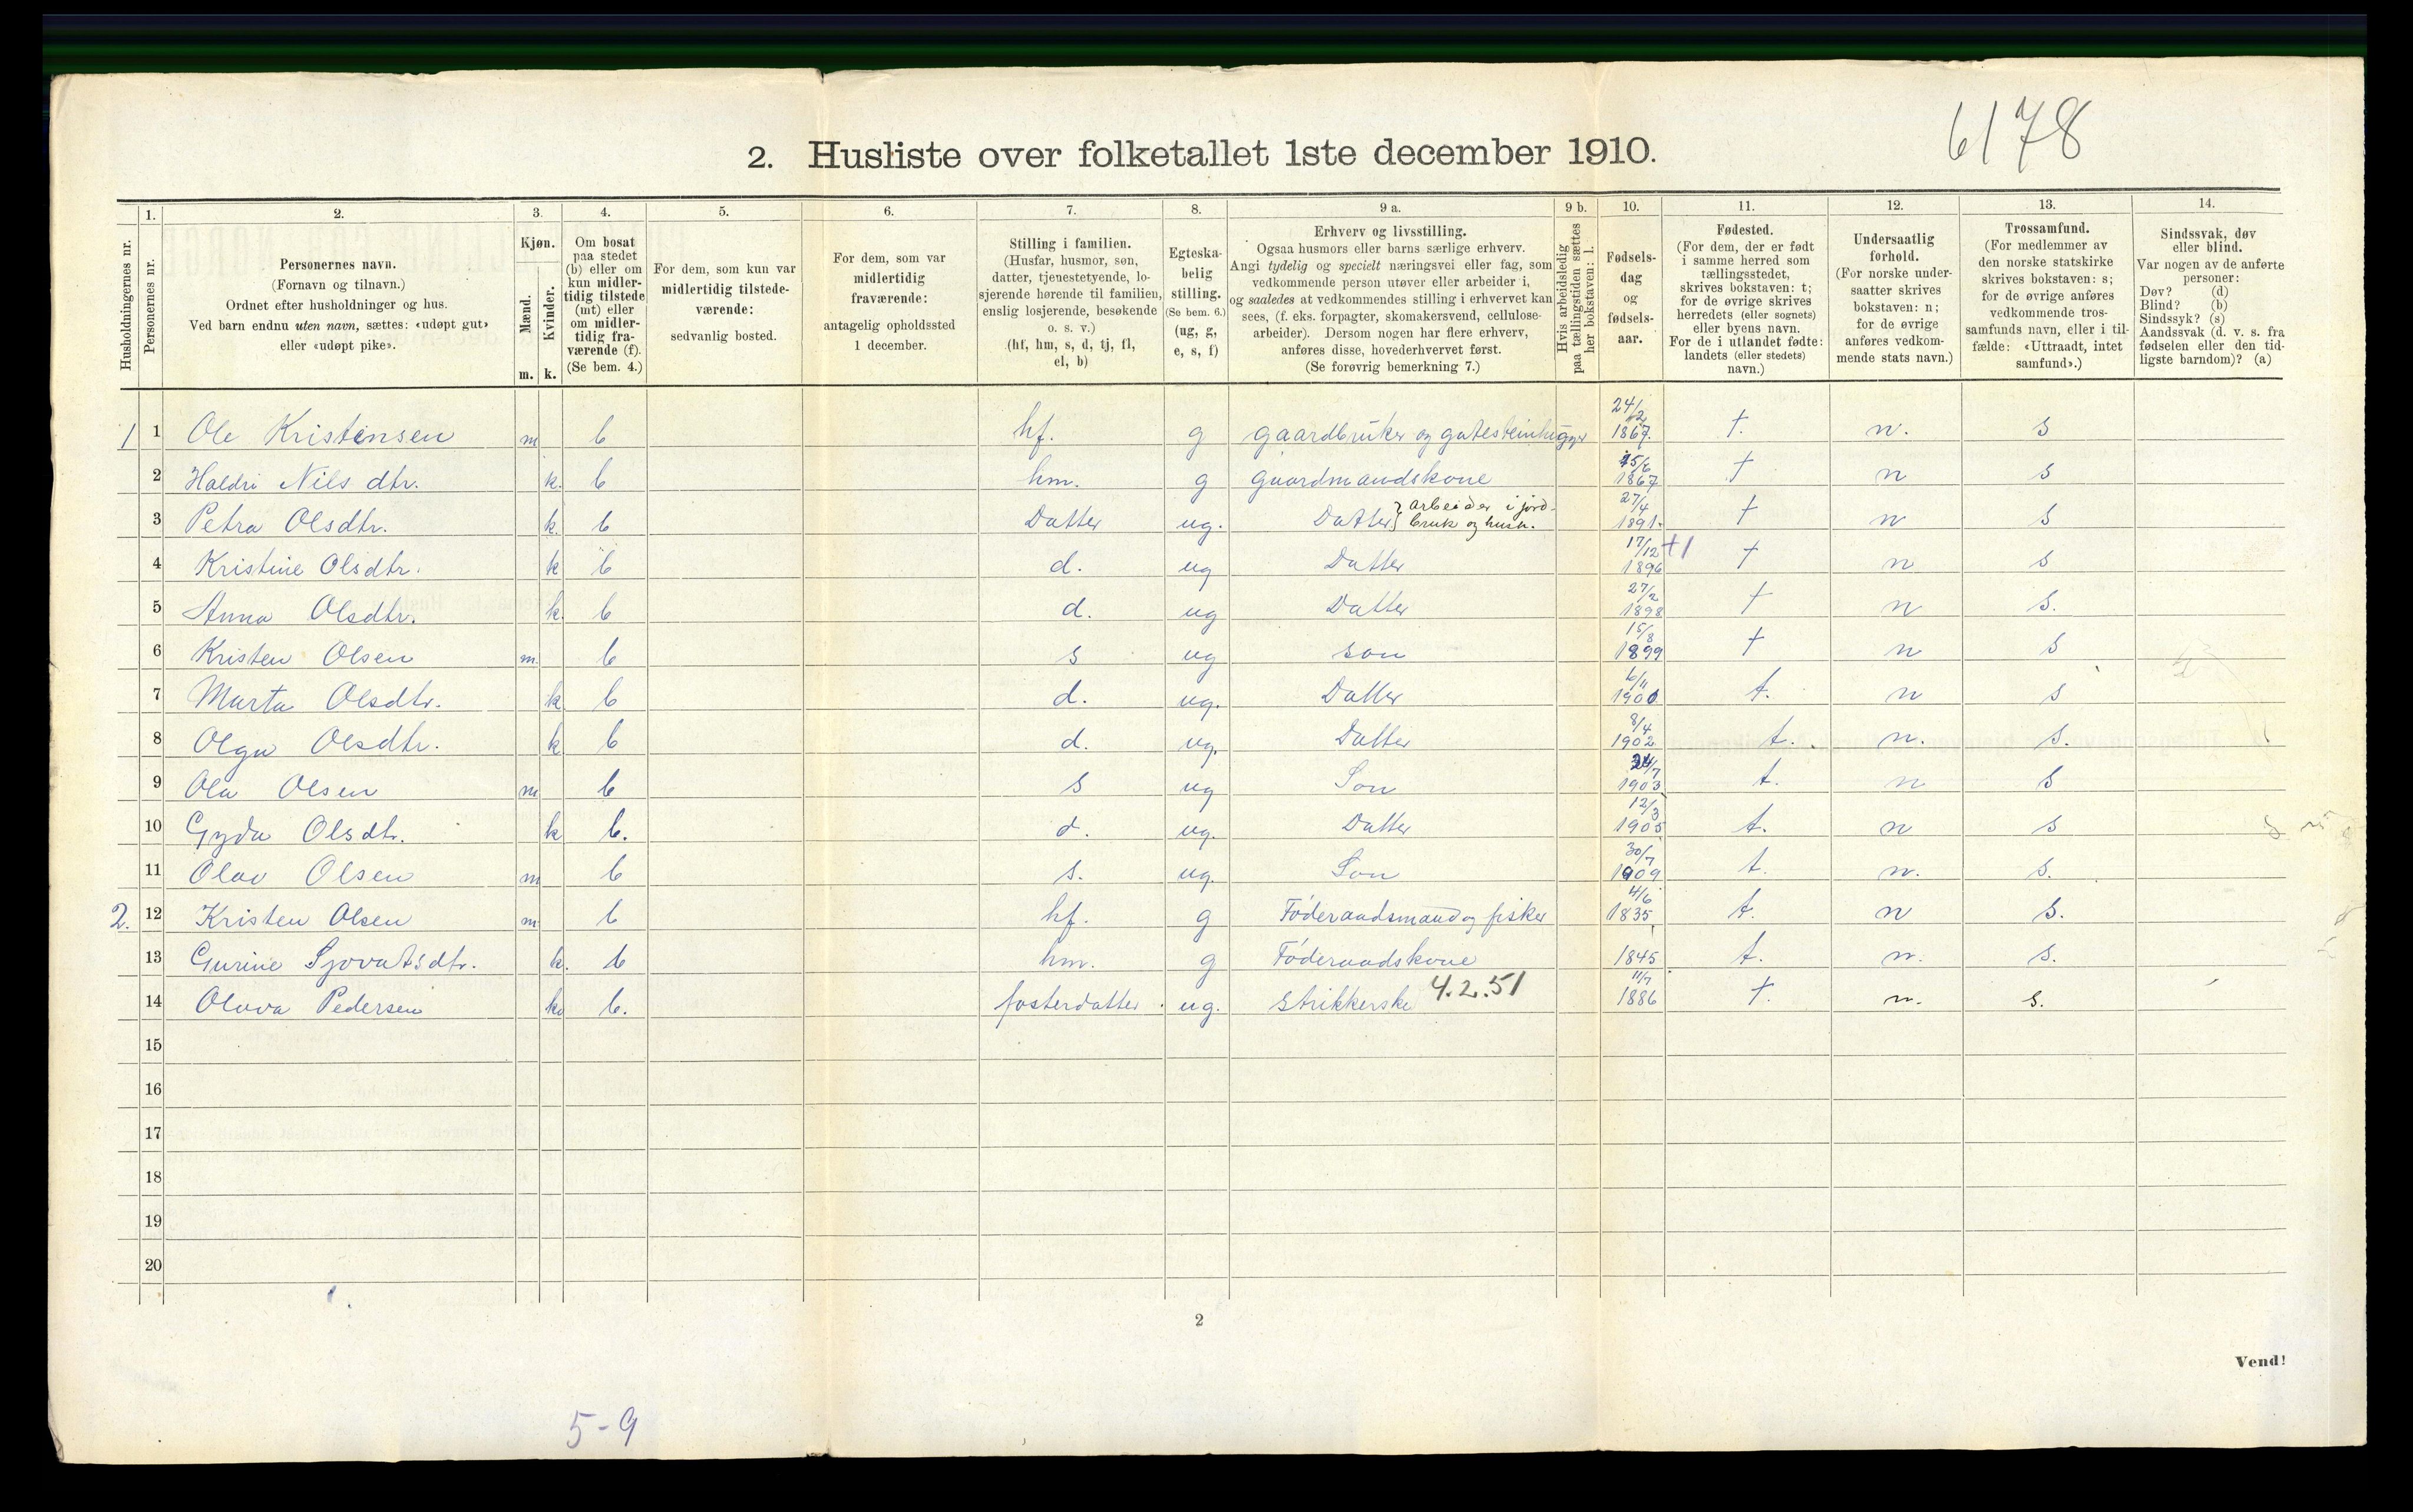 6178
2. Husliste over folketallet 1ste december 1910.
Husholdningernes nr.
1.
Personernes nr.
2.
Personernes navn.
(Fornavn og tilnavn.)
Ordnet efter husholdninger og hus.
Ved barn endnu uten navn, sættes: «udøpt gut»
eller «udøpt pike».
3.
Kjøn.
Mænd.
Kvinder.
m. k.
4.
Om bosat
paa stedet
(b) eller om
kun midler-
tidig tilstede
(mt) eller
om midler-
tidig fra-
værende (f).
(Se bem. 4.)
5.
For dem, som kun var
midlertidig tilstede-
værende:
sedvanlig bosted.
6.
For dem, som var
midlertidig
fraværende:
antagelig opholdssted
1 december.
7.
Stilling i familien.
(Husfar, husmor, søn,
datter, tjenestetyende, lo-
sjerende hørende til familien,
enslig losjerende, besøkende
o. s. v.)
(hf, hm, s, d, tj, fl,
el, b)
8.
Egteska-
belig
stilling.
(Se bem. 6.)
(ug, g,
e, s, f)
9 a.
Erhverv og livsstilling.
Ogsaa husmors eller barns særlige erhverv.
Angi tydelig og specielt næringsvei eller fag, som
vedkommende person utøver eller arbeider i,
og saaledes at vedkommendes stilling i erhvervet kan
sees, (f. eks. forpagter, skomakersvend, cellulose-
arbeider). Dersom nogen har flere erhverv,
anføres disse, hovederhvervet først.
(Se forøvrig bemerkning 7.)
9 b.
Hvis arbeidsledig
paa tællingstiden sættes
her bokstaven: l.
10.
Fødsels-
dag
og
fødsels-
aar.
11.
Fødested.
(For dem, der er født
i samme herred som
tællingsstedet,
skrives bokstaven: t;
for de øvrige skrives
herredets (eller sognets)
eller byens navn.
For de i utlandet fødte:
landets (eller stedets)
navn.)
12.
Undersaatlig
forhold.
(For norske under-
saatter skrives
bokstaven: n;
for de øvrige
anføres vedkom-
mende stats navn.)
13.
Trossamfund.
(For medlemmer av
den norske statskirke
skrives bokstaven: s;
for de øvrige anføres
vedkommende tros-
samfunds navn, eller i til-
fælde: «Uttraadt, intet
samfund».)
14.
Sindssvak, døv
eller blind.
Var nogen av de anførte
personer:
Døv? (d)
Blind? (b)
Sindssyk? (s)
Aandssvak (d. v. s. fra
fødselen eller den tid-
ligste barndom)? (a)
1 1 Ole Kristensen m b hf. g gaardbruker og gatesteinhugger 24/12 1867. t. n. s
2 Haldri Nilsdtr. k. b hm. g gaardmandskone 15/6 1867 t n s
3 Petra Olsdtr. k. b Datter ug. Datter } arbeider i jord-
bruk og husn. 27/4 1891. t n s
4 Kristine Olsdtr. k b d. ug Datter 17/12 1896 +1 t n s
5 Anna Olsdtr. k. b d. ug Datter 27/2 1898 t n s.
6 Kristen Olsen m. b s ug son 15/8 1899 t n s
7 Marta Olsdtr. k b d. ug. Datter 6/11 1900 t. n s
8 Olga Olsdtr. k b d. ug. Datter 8/4 1902 t. n. s.
9 Ola Olsen m b s ug Son 24/7 1903 t. n s
10 Gyda Olsdtr. k b. d. ug. Datter 12/3 1905 t. n s
11 Olav Olsen m b s. ug. Son 30/7 1909 t. n. s.
2. 12 Kristen Olsen m b hf. g Føderaadsmand og fisker 4/6 1835 t. n s.
13 Gurine Sjovatsdtr. k. b hm. g Føderaadskone 1845 t. n. s.
14 Olava Pedersen k b. fosterdatter ug. strikkerske 4.2.51 11/7 1886 t. n. s.
15
16
17
18
19
20
2
Vend!
5-9